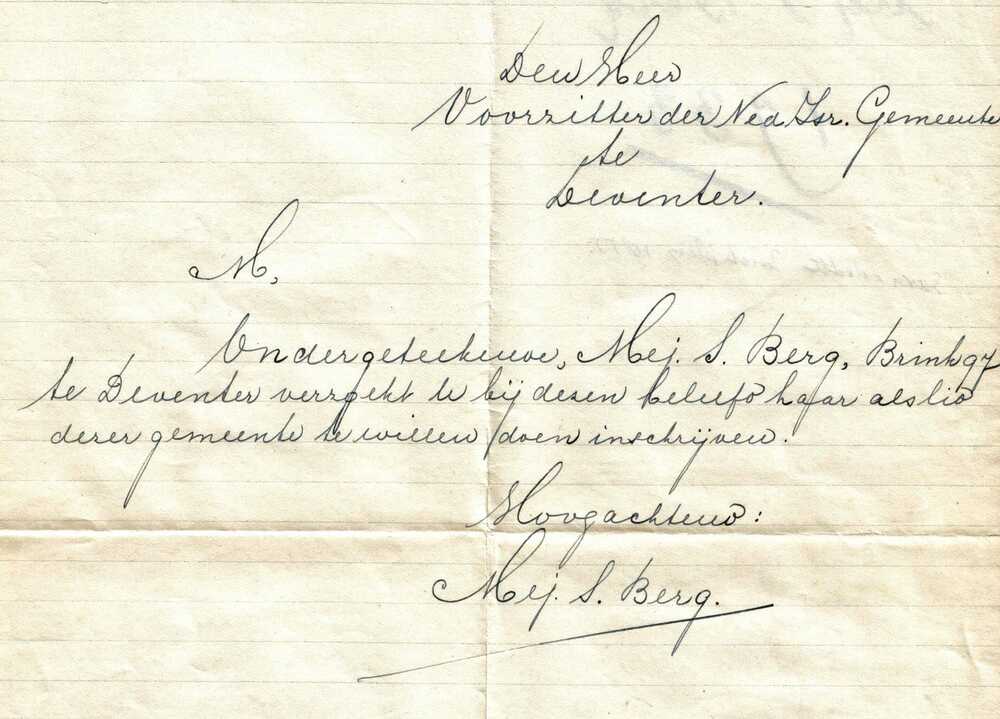 Den Heer
Voorzitter der Ned. Isr. Gemeente
te
Deventer.
M,
Ondergeteekende, Mej. S. Berg, Brink 97
te Deventer verzoekt U bij dezen beleefd haar als lid
dezer gemeente te willen doen inschrijven.
Hoogachtend:
Mej. S. Berg.